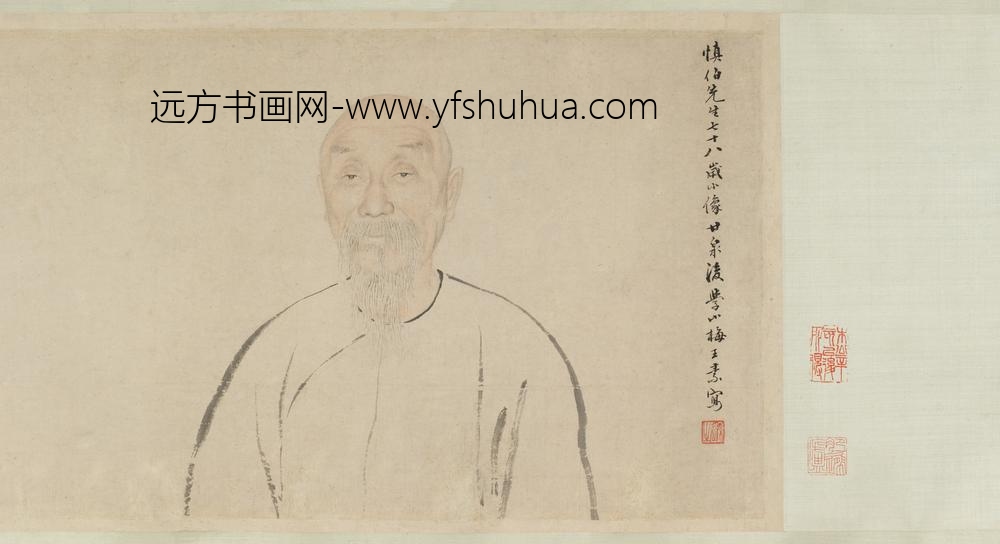 远方书画网-www.yfshuhua.com
慎伯先生七十八歲小像甘泉後學小梅王素寫